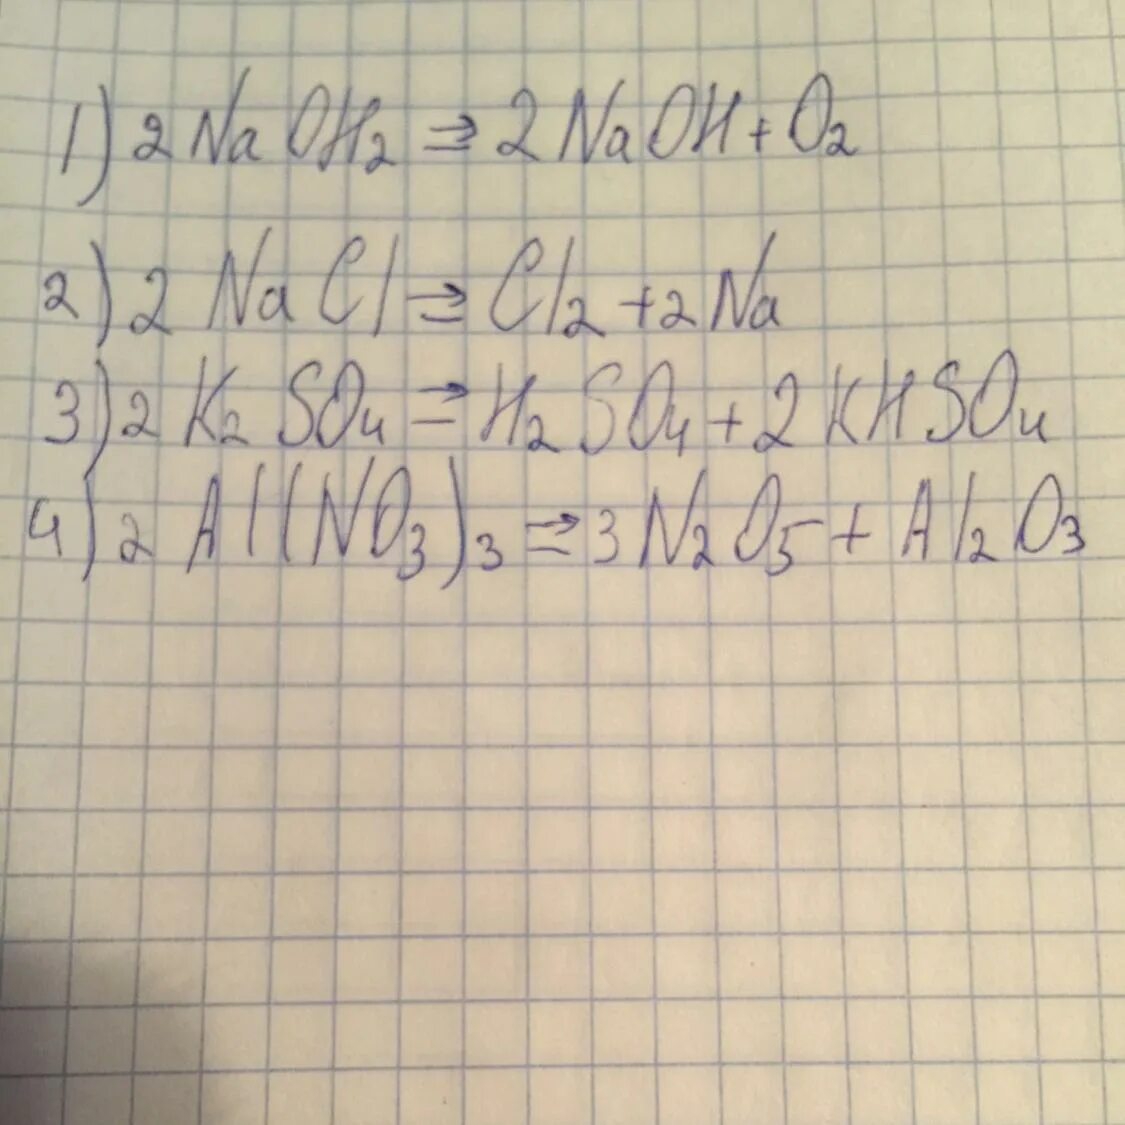 1) 2NaOH₂ ⇒ 2NaOH + O₂
2) 2NaCl ⇒ Cl₂ + 2Na
3) 2K₂SO₄ ⇒ H₂SO₄ + 2KHSO₄
4) 2Al(NO₃)₃ ⇒ 3N₂O₅ + Al₂O₃